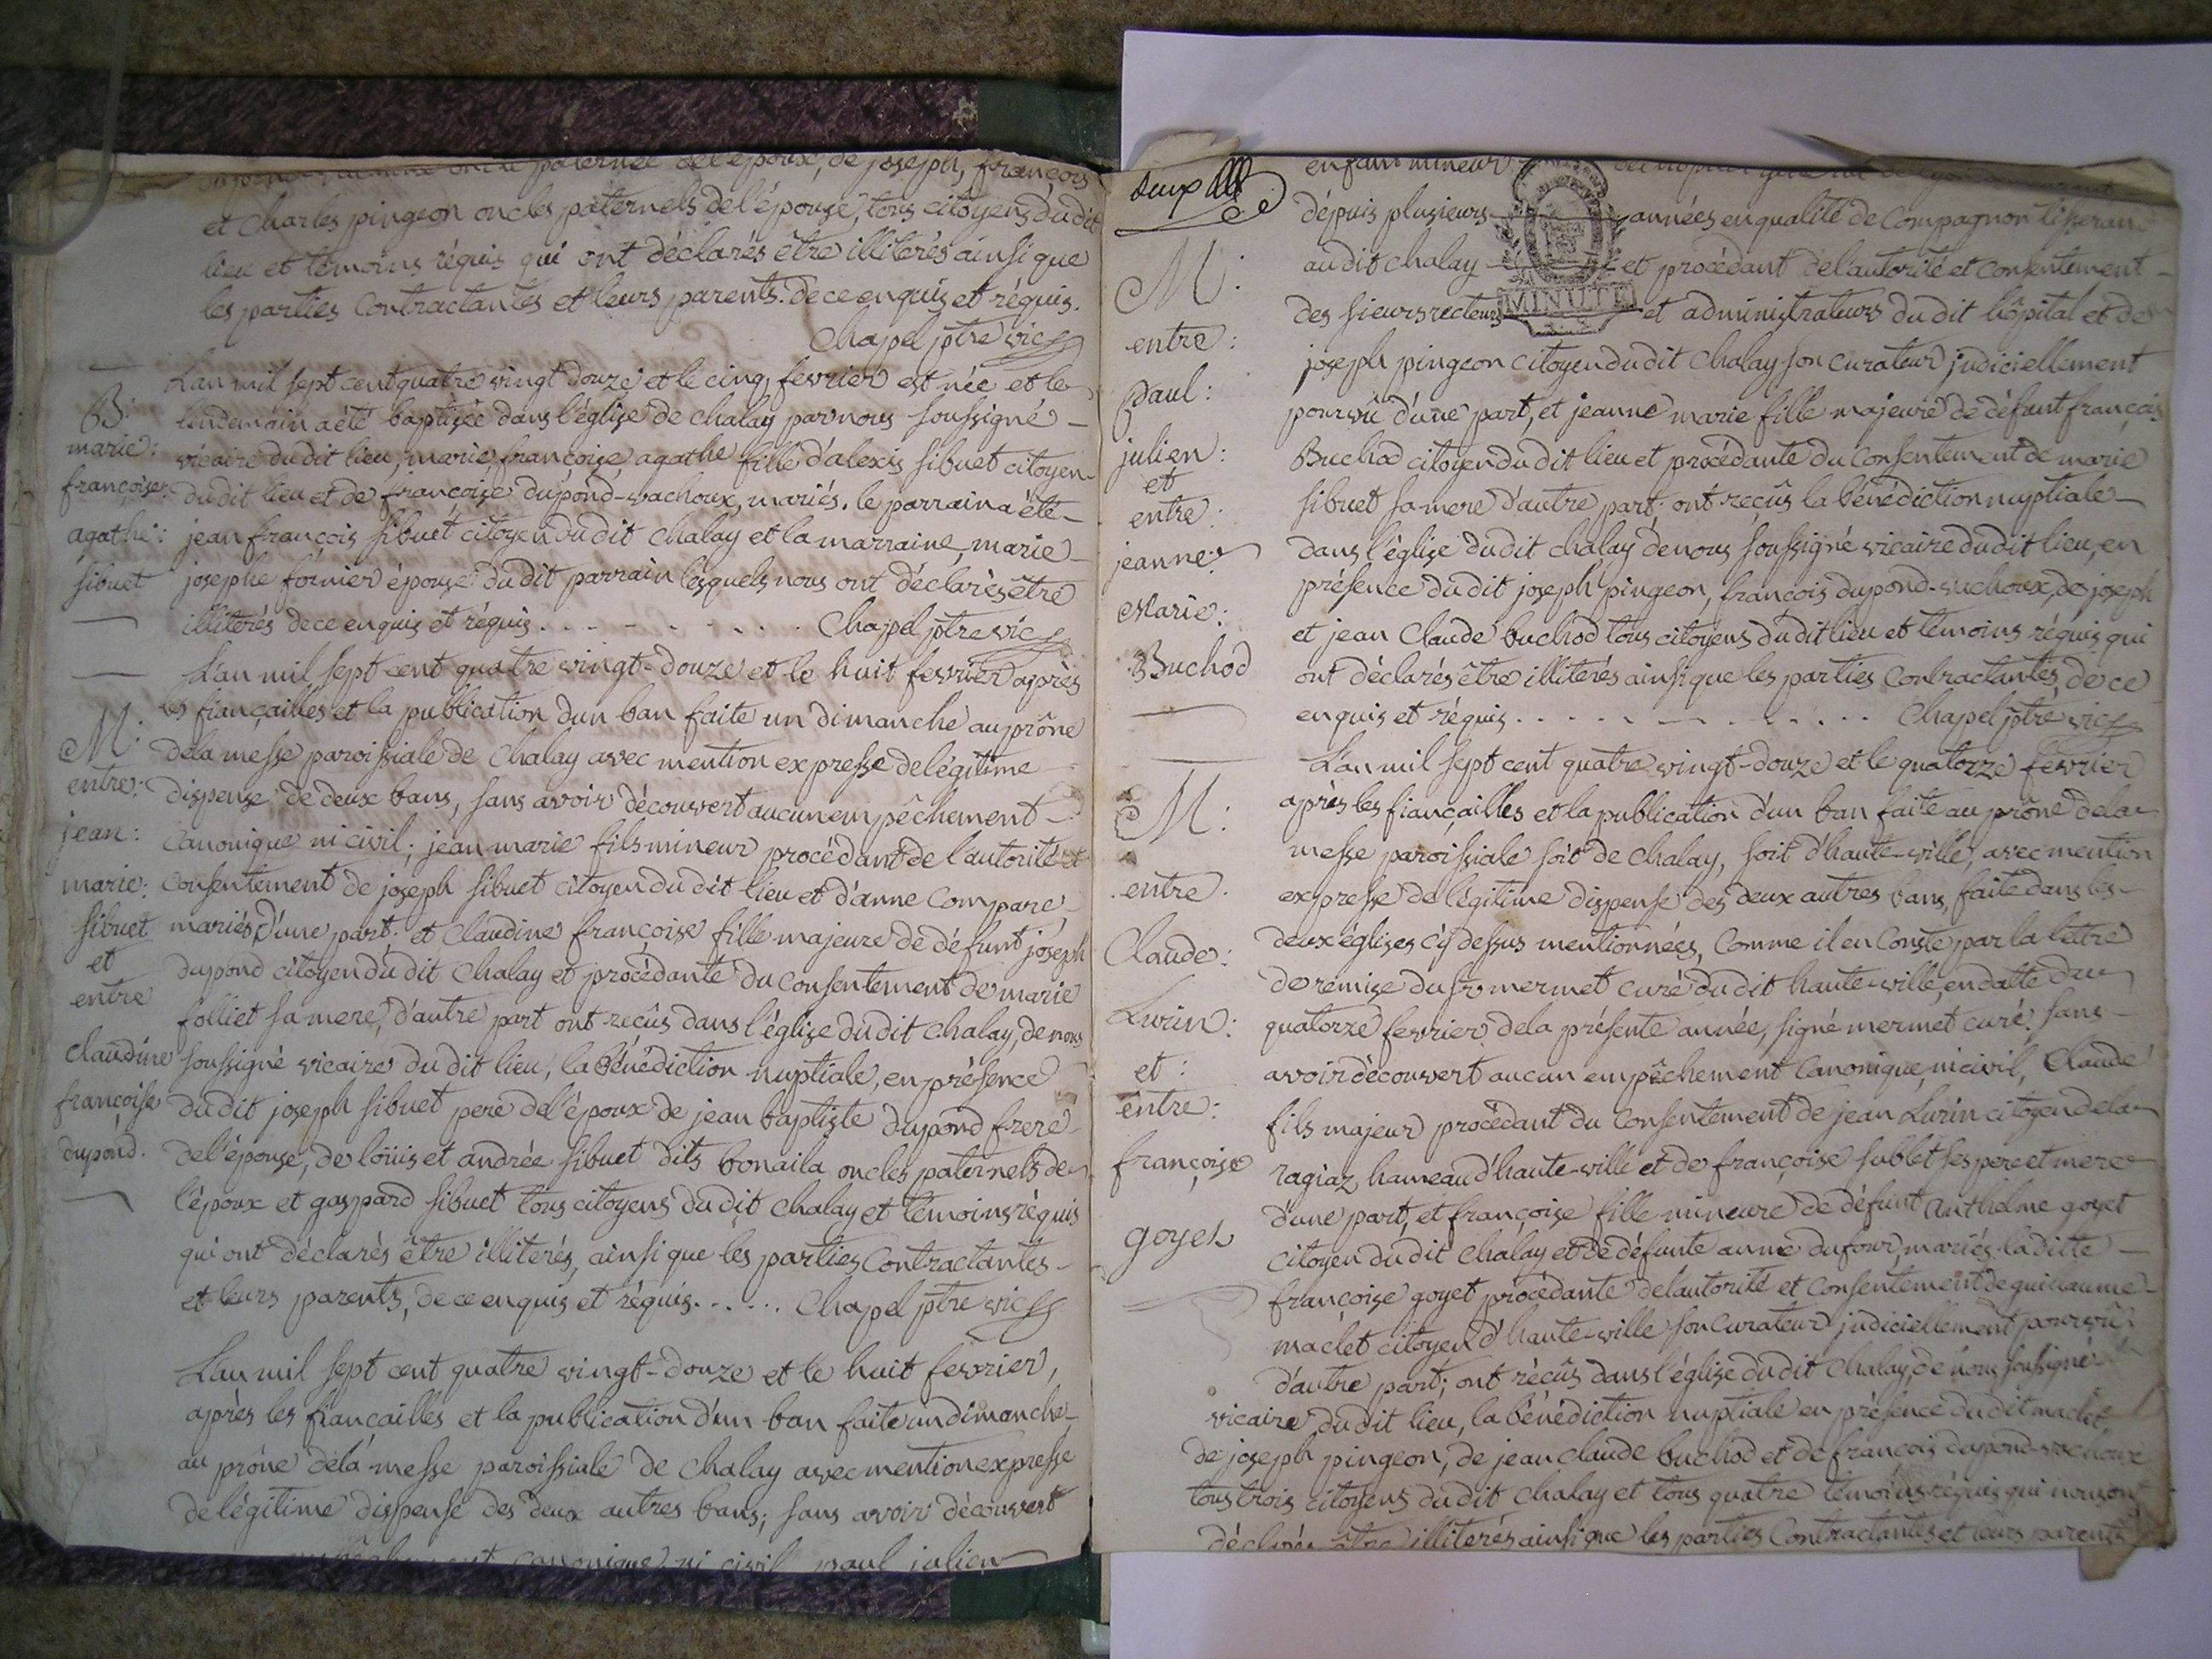 paternel de l'époux, de joseph, françois
et Charles pingeon oncles paternels de l'épouse, tous citoyens du dit
lieu et témoins réquis qui ont déclarés être illiterés ainsi que
les parties Contractantes et leurs parents. de ce enquis et réquis.
Chapel ptre vic
B:
marie:
françoise:
agathe:
sibuet
L'an mil sept cent quatre vingt douze et le cinq fevrier est née et le
lendemain a été baptisée dans l'église de chalay par nous soussigné
vicaire du dit lieu, marie, françoise, agathe fille d'alexis sibuet citoyen
du dit lieu et de françoise dupond-vachoux, mariés. le parrain a été
jean françois sibuet citoyen du dit chalay et la marraine, marie
josephe fornier épouse du dit parrain lesquels nous ont déclarés être
illiterés de ce enquis et réquis. Chapel ptre vic
M:
entre:
jean:
marie:
sibuet
et
entre
claudine
françoise
dupond.
L'an mil sept cent quatre vingt-douze et le huit fevrier après
les fiançailles et la publication d'un ban faite un dimanche au prône
de la messe paroissiale de Chalay avec mention expresse de légitime
dispense de deux bans, sans avoir découvert aucun empêchement
Canonique ni civil; jean marie fils mineur procédant de l'autorité et
consentement de joseph sibuet citoyen du dit lieu et d'anne Compare
mariés, d'une part; et Claudine françoise fille majeure de défunt joseph
dupond citoyen du dit Chalay et procédante du consentement de marie
folliet sa mere, d'autre part ont reçûs dans l'église du dit chalay, de nous
soussigné vicaire du dit lieu, la Bénédiction nuptiale, en présence
du dit joseph sibuet pere de l'époux de jean baptiste dupond frere
de l'épouse, de loüis et andrée sibuet dits bonaila oncles paternels de
l'époux et gaspard sibuet tous citoyens du dit chalay et témoins réquis
qui ont déclarés être illiterés, ainsi que les parties Contractantes
et leurs parents, de ce enquis et réquis...... Chapel ptre vic
L'an mil sept cent quatre vingt-douze et le huit fevrier,
après les fiançailles et la publication d'un ban faite un dimanche
au prône de la messe paroissiale de Chalay avec mention expresse
de légitime dispense des deux autres bans; sans avoir découvert
canonique ni civil paul julien
M:
entre:
paul:
julien:
et
entre:
jeanne:
Marie:
Buchod
enfant mineur
dépuis plusieurs années en qualité de Compagnon tisseran
au dit chalay et procédant de l'autorité et consentement
MINUTE
des sieurs recteurs et administrateurs du dit hôpital et de
joseph pingeon citoyen du dit Chalay son curateur judiciellement
pourvû d'une part, et jeanne marie fille majeure de défunt françois
Buchod citoyen du dit lieu et procédante du Consentement de marie
sibuet sa mere d'autre part; ont reçûs la bénédiction nuptiale
dans l'église du dit chalay de nous soussigné vicaire du dit lieu, en
présence du dit joseph pingeon, françois dupond-vachoux, de joseph
et jean Claude buchod tous citoyens du dit lieu et témoins réquis qui
ont déclarés être illiterés ainsi que les parties Contractantes, de ce
enquis et réquis. Chapel ptre vic
M:
entre.
Claude:
Lurin:
et:
entre:
françoise
goyet
L'an mil sept cent quatre vingt-douze et le quatorze fevrier
après les fiançailles et la publication d'un ban faite au prône de la
messe paroissiale soit de chalay, soit d'haute-ville, avec mention
expresse de légitime dispense des deux autres bans, faite dans les
deux églises cÿ dessus mentionnées, Comme il en Conste par la lettre
de remise du sr mermet curé du dit haute-ville, en datte du
quatorze fevrier de la présente année, signé mermet curé. sans
avoir découvert aucun empêchement Canonique, ni civil, Claude
fils majeur procédant du Consentement de jean Lurin citoyen de la
ragiaz, hameau d'haute-ville et de françoise sublet ses pere et mere
d'une part, et françoise fille mineure de défunt anthelme goyet
citoyen du dit chalay et de défunte anne dufour, mariés. la ditte
françoise goyet procédante de l'autorité et Consentement de guillaume
maclet citoyen d'haute-ville son curateur judiciellement pourvû
d'autre part; ont réçûs dans l'église du dit Chalay, de nous soussigné
vicaire du dit lieu, la bénédiction nuptiale en présence du dit maclet
de joseph pingeon, de jean claude buchod et de françois dupond-vachoux
tous trois citoyens du dit Chalay et tous quatre témoins réquis qui nous ont
déclarés être illiterés ainsi que les parties Contractantes et leurs parents